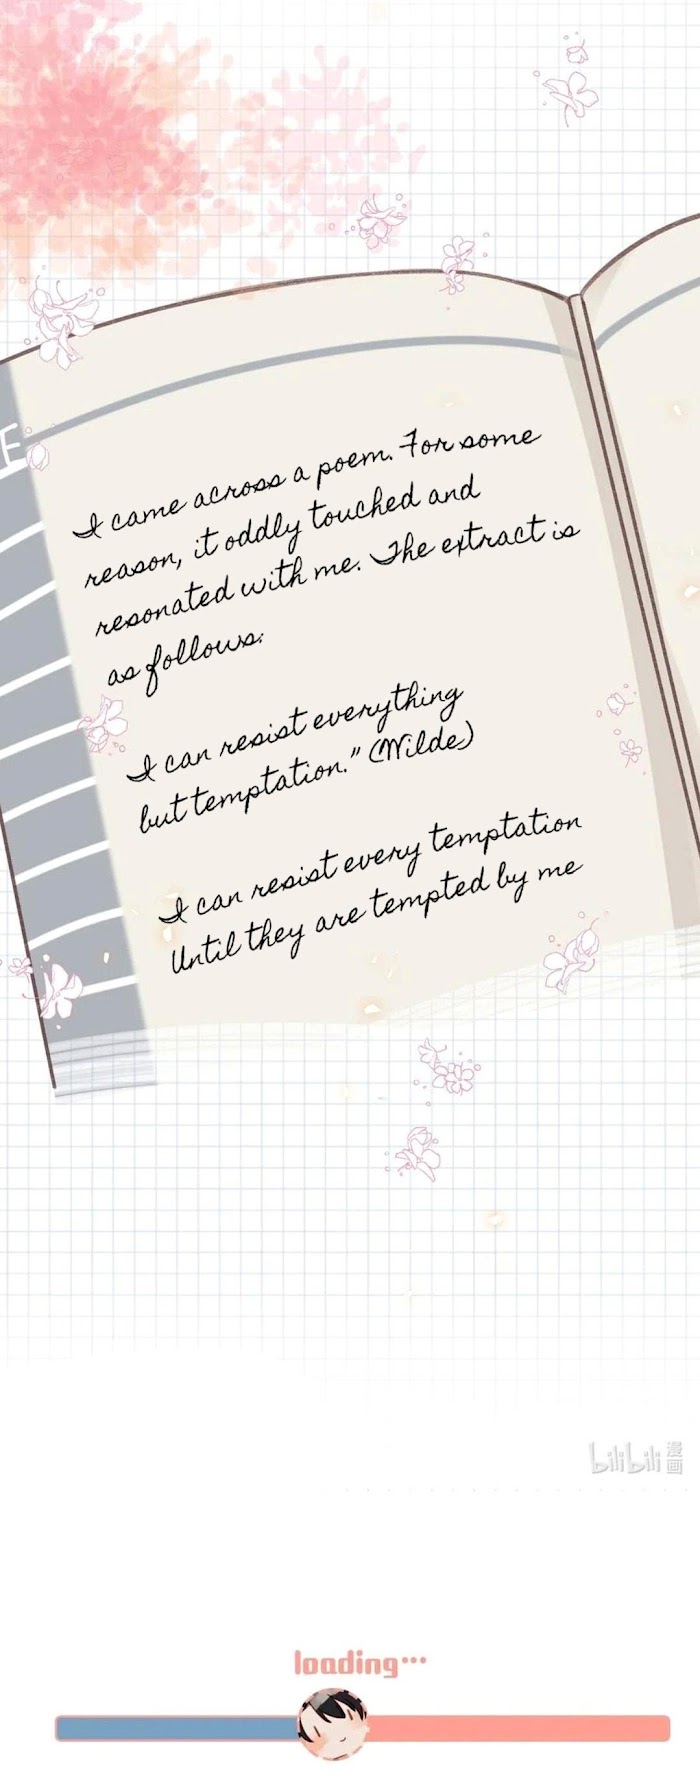 F
I came across a poem. For some
reason, it oddly touched and
resonated with me. The extract is
as follows:
I can resist everything
but temptation." (Wilde)
I can resist every temptation
Until they are tempted by me
bilibili 漫画
loading...